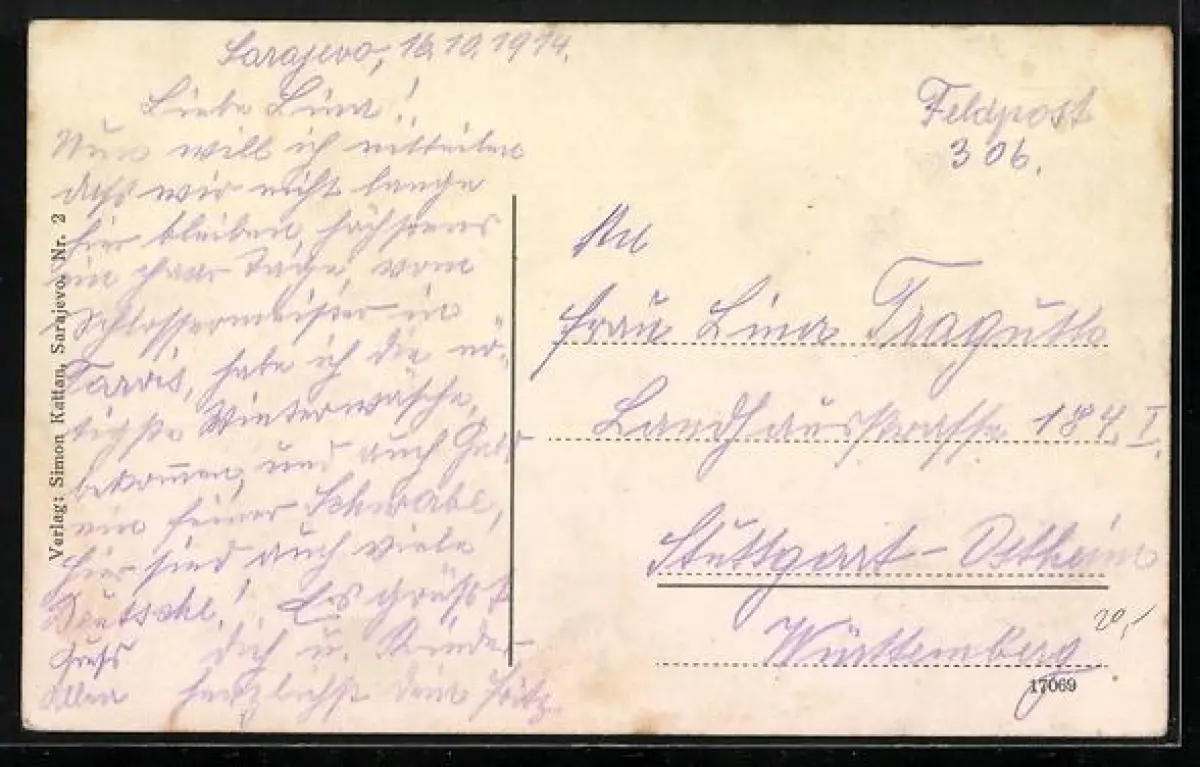 Sarajevo, 16.10.1914.
Liebe Lina!
Nun will ich mitteilen
daß wir nicht lange
hier bleiben, höchstens
ein paar Tage, vom
Schlossermeister in
Tarvis, habe ich die nö-
tigste Winterwäsche,
bekommen, und auch Geld
ein feiner Schwabe,
hier sind auch viele
Deutsche! Es grüßt
dich u. Kinder
Allen herzlichst dein Fritz
Gruß
Verlag: Simon Kattan, Sarajevo. Nr. 2
Feldpost
306.
An
Frau Lina
Landhausstrasse 184. I.
Stuttgart-Ostheim
Württemberg
20,-
17069